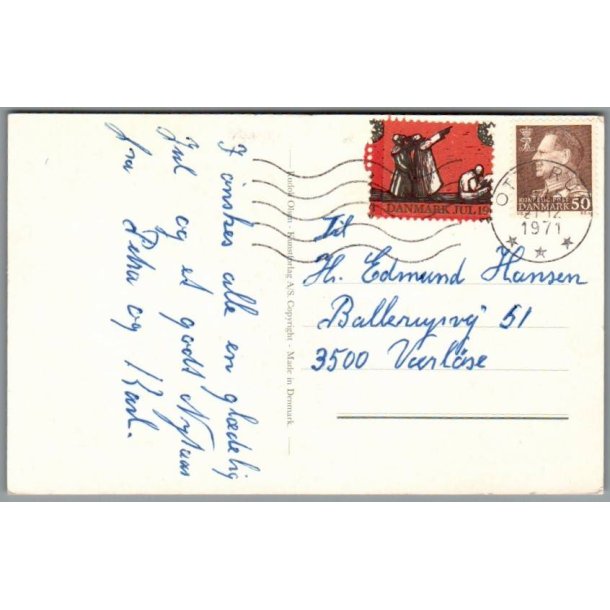 I ønskes alle en glædelig
Jul og et godt Nytaar
fra Petra og Karl.
Rudolf Olsen - Kunstforlag A/S. Copyright - Made in Denmark.
DANMARK JUL 19
50
DANMARK
21-12
1971
Til
Hr. Edmund Hansen
Ballerupvej 51
3500 Værløse